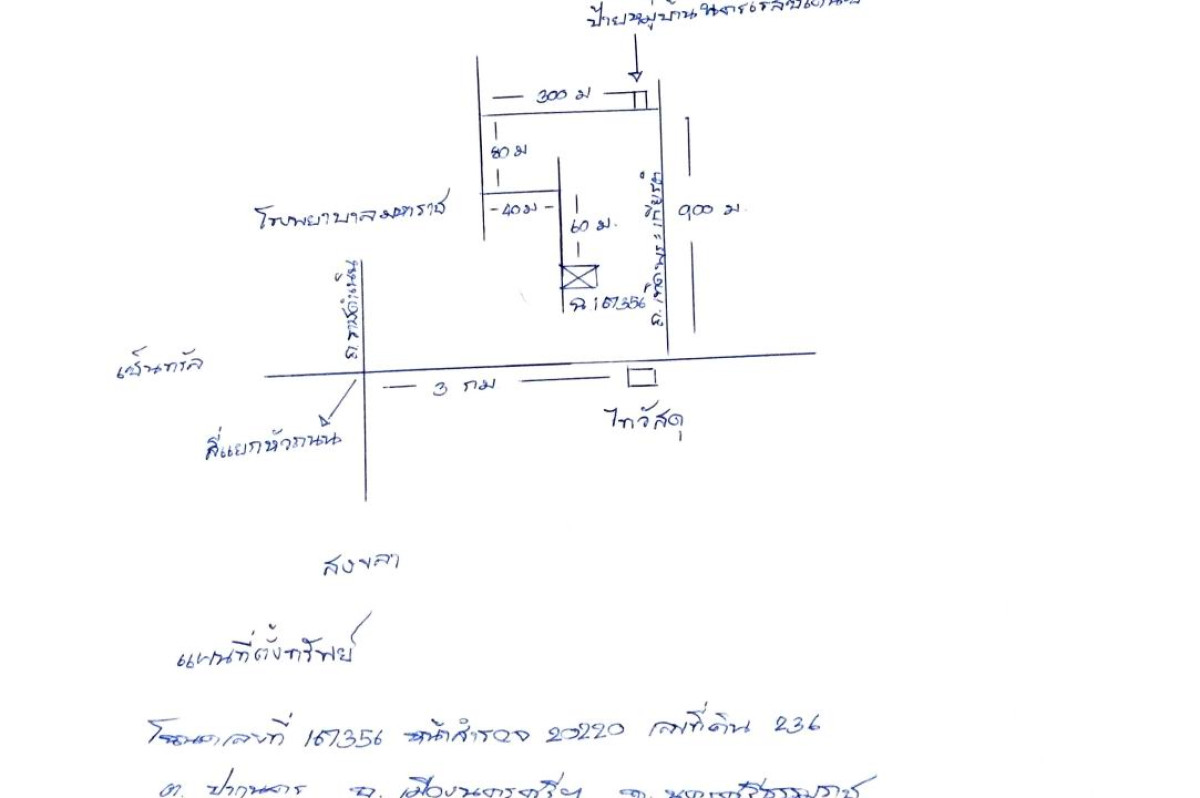 ป้ายหมู่บ้าน
300 ม
80 ม
โรงพยาบาลมหาราช
-40ม-
60 ม.
ถ.เทิดพระเกียรติ
900 ม.
ฉ.167356
ถ.ราชดำเนิน
เซ็นทรัล
3 กม
ไทวัสดุ
สี่แยกหัวถนน
สงขลา
แผนที่ตั้งทรัพย์
โฉนดเลขที่ 167356 หน้าสำรวจ 20220 เลขที่ดิน 236
ต. ปากนคร อ. เมืองนครศรีฯ จ. นครศรีธรรมราช